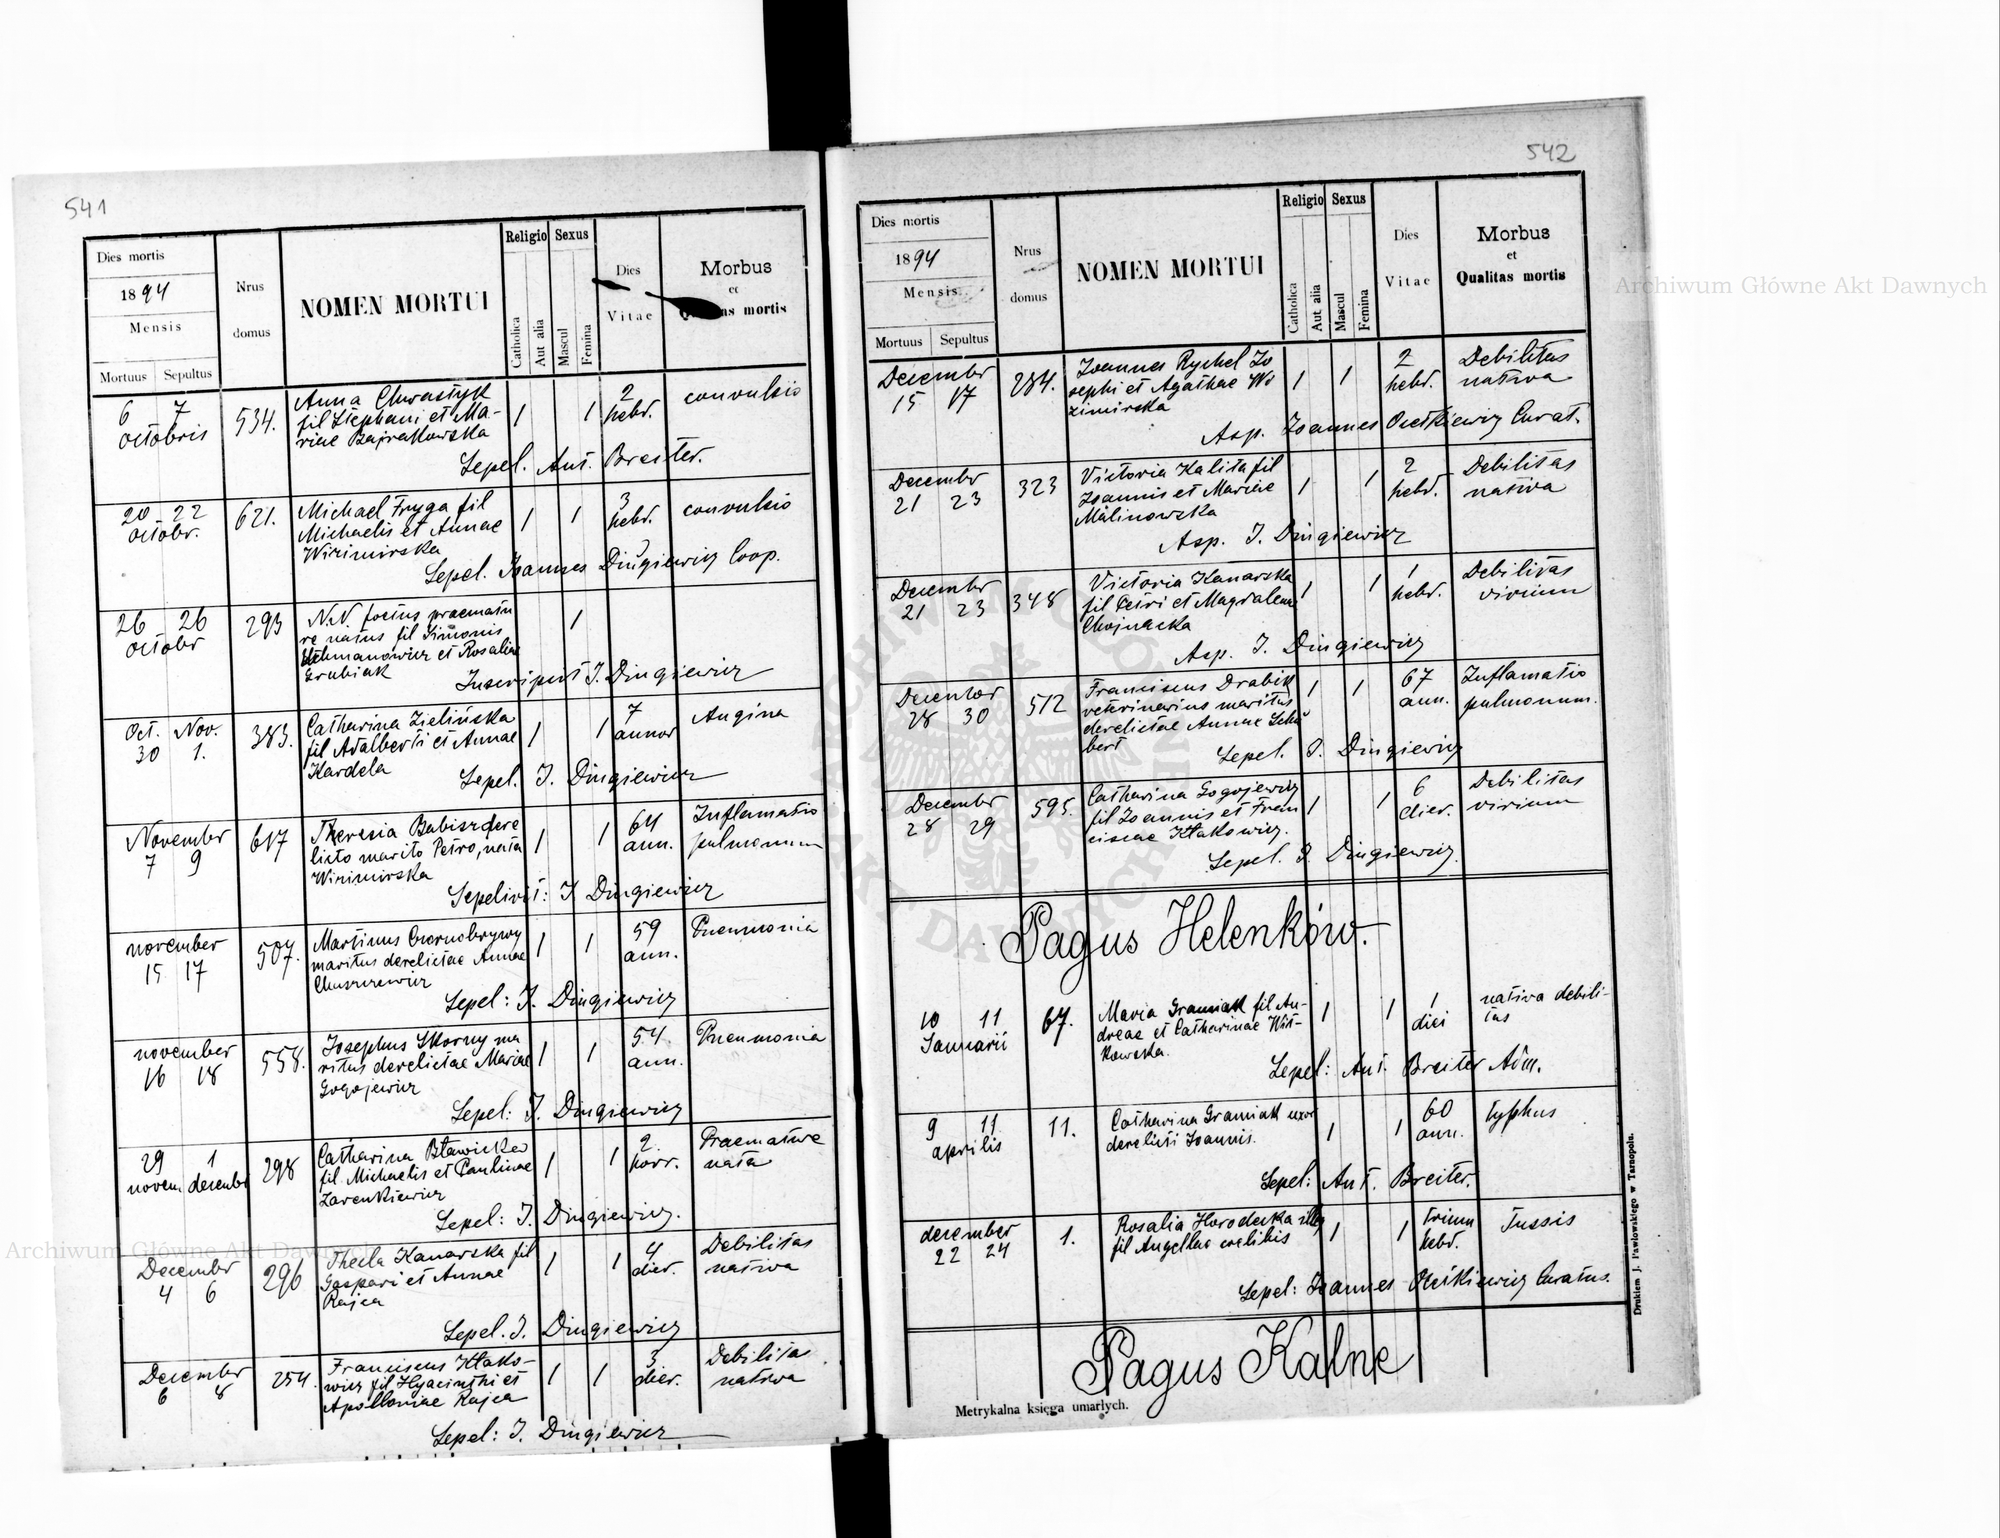 541
Dies mortis
1894
Mensis
Mortuus Sepultus
Nrus domus
NOMEN MORTUI
Religio
Catholica
Aut alia
Sexus
Mascul
Femina
Dies Vitae
Morbus
et
mortis
6 7 octobris 534. Anna Chwastyk 1 1 2 hebd. convulsio
fil Stephani et Ma-
riae Bajrakowska
Sepel. Ant. Breiter.
20 22 octobr. 621. Michael Fryga fil 1 1 3 hebd. convulsio
Michaelis et Annae
Wizimirska
Sepel. Joannes Dingiewicz Coop.
26 26 octobr 293 N.N. foetus praematu 1
re natus fil Simonis
et Rosaliae
Grubiak
Inscripsit J. Dingiewicz
Oct. Nov. 30 1. 383. Catharina Zielińska 1 1 7 annor Angina
fil Adalberti et Annae
Kardela
Sepel. J. Dingiewicz
November 7 9 617 Theresia Babisz dere 1 1 64 ann. Inflamatio pulmonum
licto marito Petro, nata
Wizimirska
Sepelivit: J. Dingiewicz
november 15 17 507. Martinus Czornobrywy 1 1 59 ann. Pneumonia
maritus derelictae Annae
Sepel: J. Dingiewicz
november 16 18 558. Josephus Skorny ma 1 1 54. ann. Pneumonia
ritus derelictae Mariae
Gogojewicz
Sepel: J. Dingiewicz
29 1 novem decembr 298 Catharina 1 1 2. horr. Praemature nata
fil. Michaelis et Paulinae
Zarenkiewicz
Sepel: J. Dingiewicz.
Decembr 4 6 296 Thecla Kanarska fil 1 1 4 dier. Debilitas nativa
Gaspari et Annae
Rajca
Sepel. J. Dingiewicz
Decembr 6 8 254. Franciscus Kłako- 1 1 3 dier. Debilitas nativa
wicz fil Hyacinthi et
Apolloniae Rajca
Sepel: J. Dingiewicz
542
Dies mortis
1894
Mensis
Mortuus Sepultus
Nrus domus
NOMEN MORTUI
Religio
Catholica
Aut alia
Sexus
Mascul
Femina
Dies Vitae
Morbus
et
Qualitas mortis
Decembr 15 17 284. Joannes Rychel Jo 1 1 2 hebd. Debilitas nativa
sephi et Agathae Wi
zimirska
Asp. Joannes Ocetkiewicz Curat.
Decembr 21 23 323 Victoria Kalita fil 1 1 2 hebd. Debilitas nativa
Joannis et Mariae
Malinowska
Asp. J. Dingiewicz
Decembr 21 23 348 Victoria Kanarska 1 1 1 hebd. Debilitas virium
fil Petri et Magdalenae
Chojnacka
Asp. J. Dingiewicz
Decembr 28 30 512 Franciscus Drabik 1 1 67 ann. Inflamatio pulmonum.
veterinarius maritus
derelictae Annae Schu
bert
Sepel. J. Dingiewicz
Decembr 28 29 595. Catharina Gogojewicz 1 1 6 dier. Debilitas virium
fil Joannis et Fran
ciscae Kłakowicz.
Sepel. J. Dingiewicz.
Pagus Helenków.
10 11 Januarii 67. Maria Graniak fil An- 1 1 1 diei nativa debili-
dreae et Catharinae Wit- tas
kowska.
Sepel: Ant. Breiter Adm.
9 11 aprilis 11. Catharina Graniak uxor 1 1 60 ann. typhus
derelicti Joannis.
Sepel: Ant. Breiter.
december 22 24 1. Rosalia Horodecka illeg 1 1 trium hebd. Tussis
fil Angellae coelibis
Sepel: Joannes Ocetkiewicz Curatus.
Pagus Kalne
Metrykalna księga umarłych.
Drukiem J. Pawłowskiego w Tarnopolu.
Archiwum Główne Akt Dawnych
Archiwum Główne Akt Dawnych